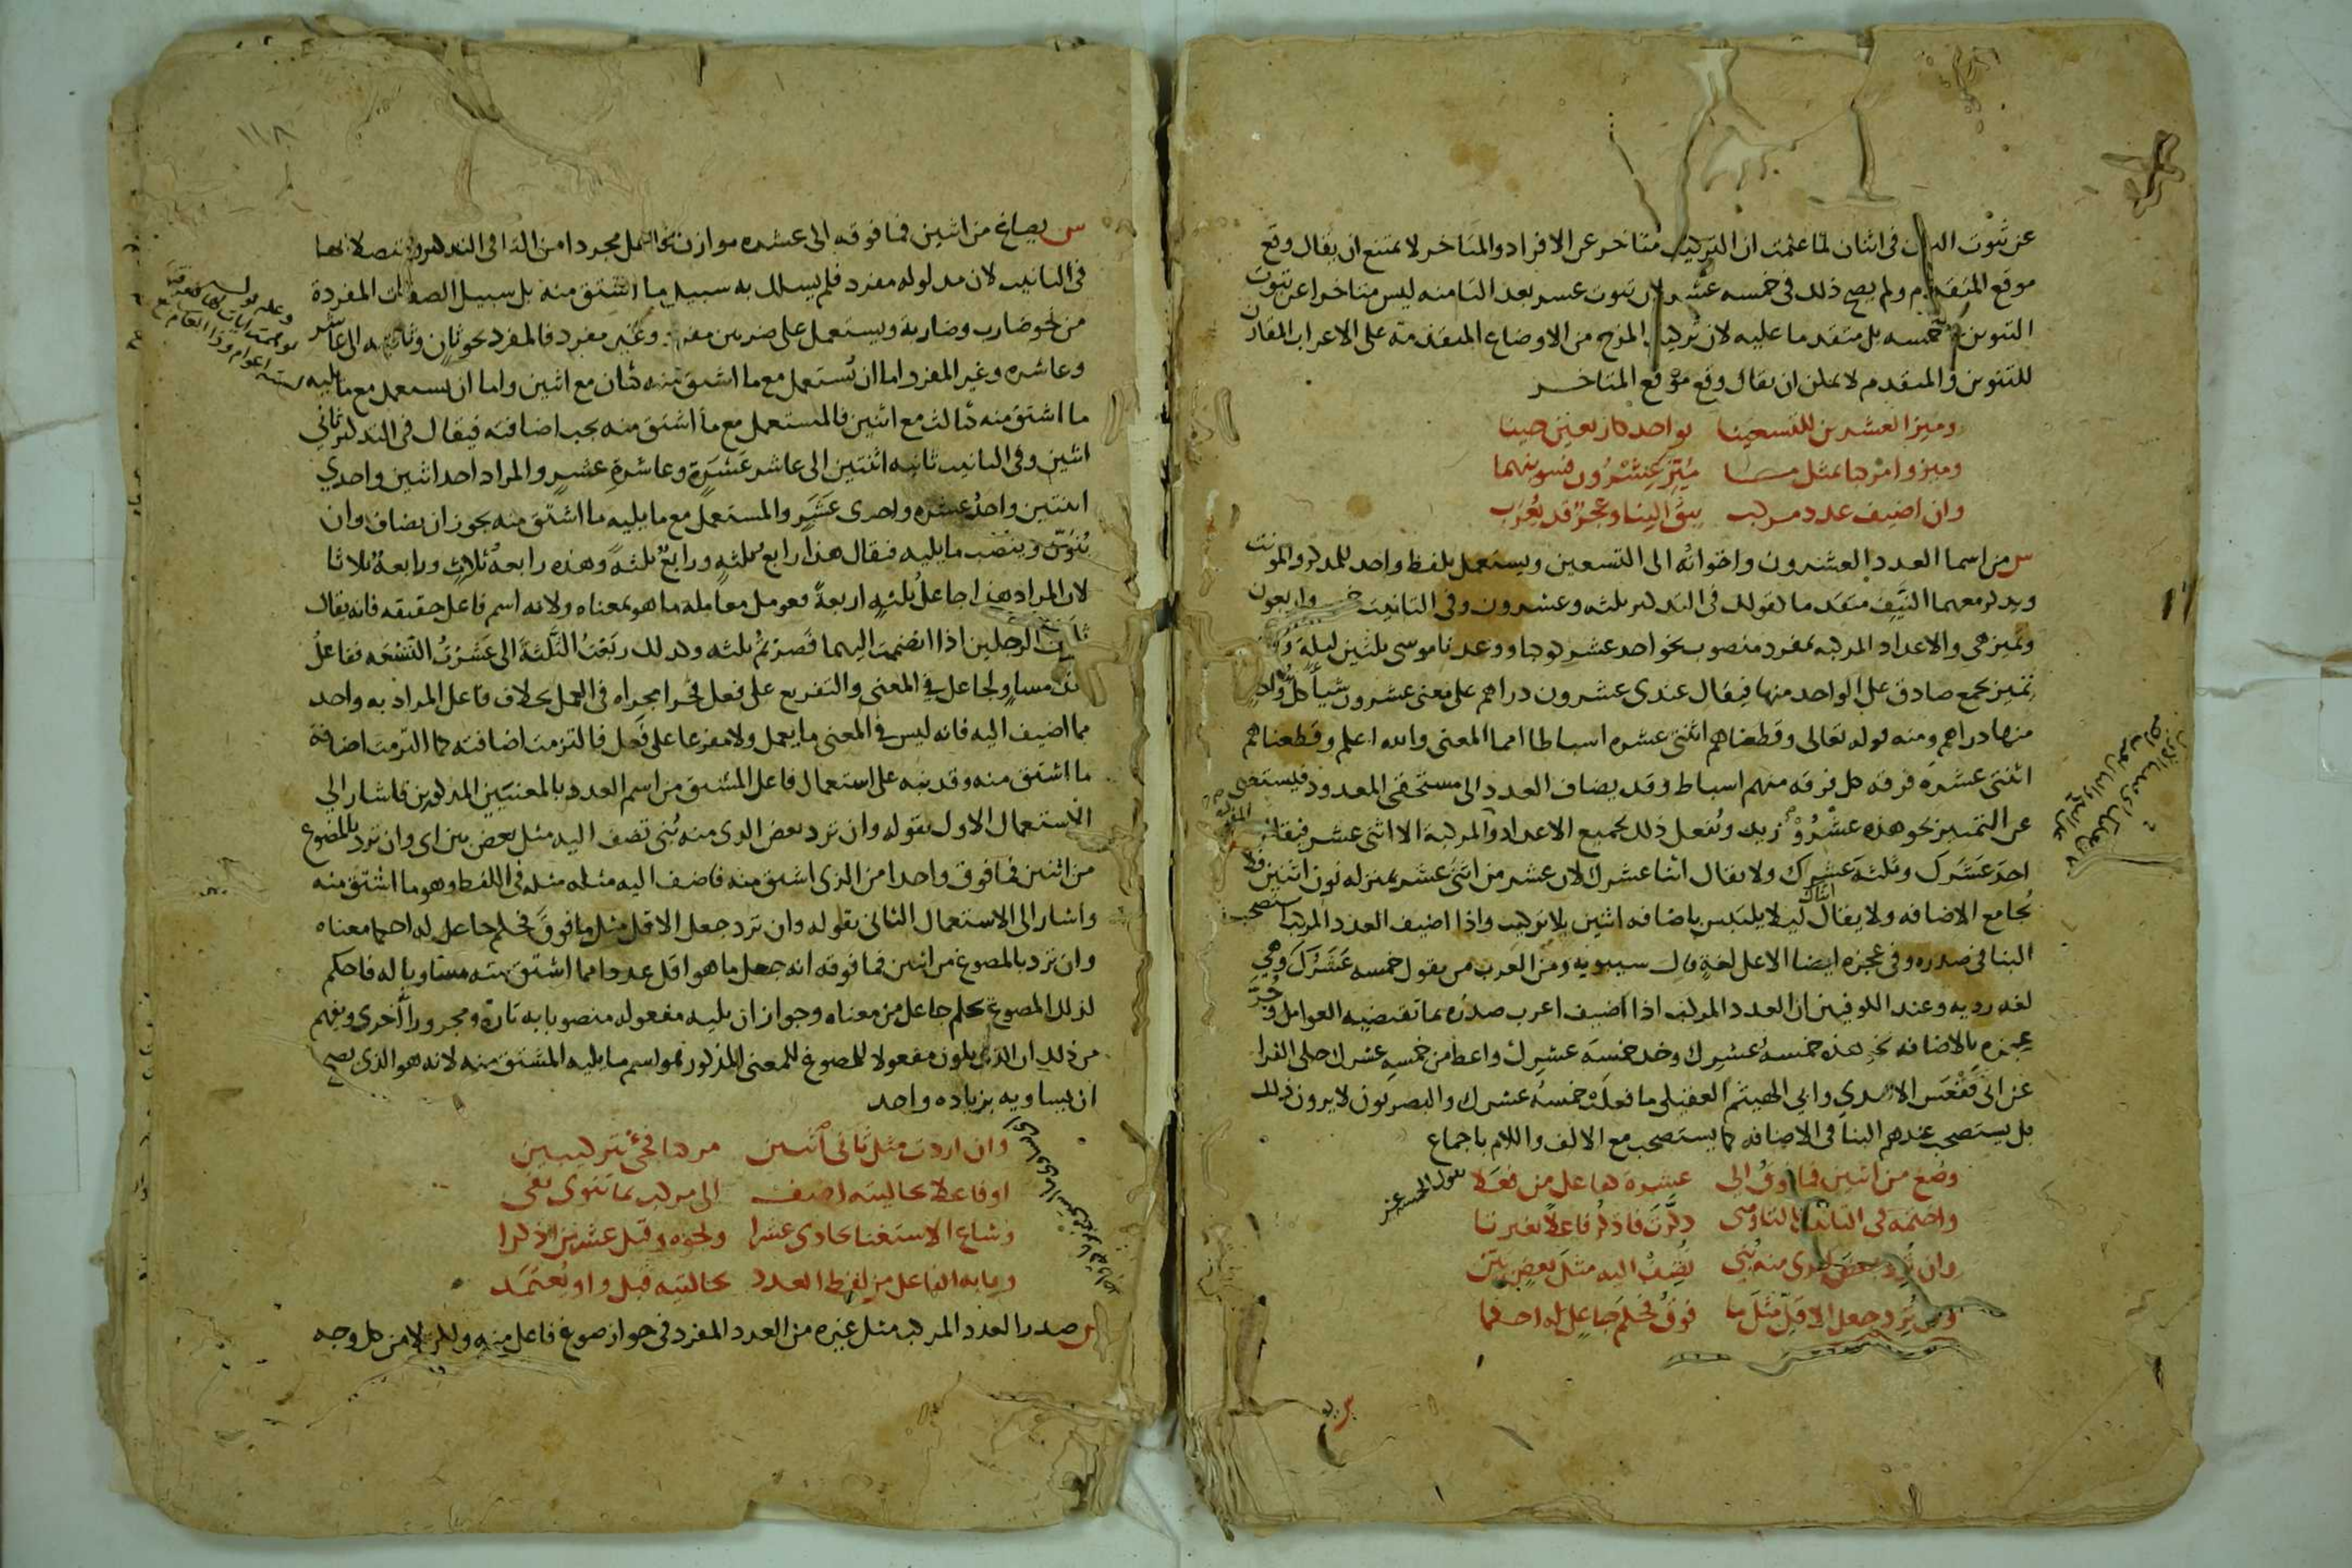 عن ثبوت النون في اثنان لما علمت ان التركيب متاخر عن الافراد والمتاخر لا يمتنع ان يقال وقع
موقع المتقدم ولم يصح ذلك في خمسه عشر لان ثبوت عشر بعد التا منه ليس متاخرا عن ثبوت
التنوين في خمسه بل متقدما عليه لان تركيب المزج من الاوضاع المتقدمة على الاعراب المقارن
للتنوين والمتقدم لا يمكن ان يقال وقع موقع المتاخر
وميز العشرين للتسعينا بواحد كاربعين حينا
وميزوا مركبا بمثل ما ميز عشرون فسوينهما
وان اضيف عدد مركب يبق البنا وعجز قد يعرب
س من اسما العدد العشرون واخواته الى التسعين ويستعمل بلفظ واحد للمذكر والمونث
ويذكر معهما النيف متقدما كقولك في التذكير ثلثه وعشرون وفي التانيث خمس واربعون
وتميز هي والاعداد المركبه بمفرد منصوب نحو احد عشر كوكبا ووعدنا موسى ثلثين ليلة
تميز بجمع صادق على الواحد منها فيقال عندي عشرون دراهم على معنى عشرون شيا كل واحد
منها دراهم ومنه قوله تعالى وقطعناهم اثنتي عشره اسباطا امما المعنى والله اعلم وقطعناهم
اثنتي عشرة فرقه كل فرقه منهم اسباط وقد يضاف العدد الى مستحقي المعدود فيستغني
عن التمييز نحو هذه عشرو زيد ويفعل ذلك بجميع الاعداد المركبة الا اثني عشر فيقال
احد عشرك وثلثة عشرك ولا يقال اثنا عشرك لان عشر من اثني عشر بمنزله نون اثنين ولا
تجامع الاضافه ولا يقال اثناك ليلا يلتبس باضافه اثنين بلا تركيب واذا اضيف العدد المركب استصحب
البنا في صدره وفي عجزه ايضا الا على لغة قال سيبويه ومن العرب من يقول خمسه عشرك وهي
لغه رديه وعند الكوفيين ان العدد المركب اذا اضيف اعرب صدره بما تقتضيه العوامل وجر
عجزه بالاضافه نحو هذه خمسة عشرك وخذ خمسة عشرك واعط من خمسة عشرك حكى الفرا
عن ابي فقعس الاسدي وابي الهيثم العقيلي ما فعلت خمسة عشرك والبصريون لا يرون ذلك
بل يستصحب عندهم البنا في الاضافه كما يستصحب مع الالف واللام باجماع
وصغ من اثنين فما فوق الى عشرة كفاعل من فعلا
واختمه في التانيث بالتا ومتى ذكرت فاذكر فاعلا بغير تا
وان ترد بعض الذي منه بني تضف اليه مثل بعض بين
وان ترد جعل الاقل مثل ما فوق فحكم جاعل له احكما
١١٨
س يصاغ من اثنين فما فوقه الى عشره موازن فاعل مجردا من التا في التذكير ومتصلا بها
في التانيث لان مدلوله مفرد فلم يسلك به سبيل ما اشتق منه بل سبيل الصفات المفردة
من نحو ضارب وضاربة ويستعمل على ضربين مفرد وغير مفرد فالمفرد نحو ثان وثانيه الى عاشر
وعاشره وغير المفرد اما ان يستعمل مع ما اشتق منه كثان مع اثنين واما ان يستعمل مع ما يليه
ما اشتق منه كثالث مع اثنين فالمستعمل مع ما اشتق منه يجب اضافته فيقال في التذكير ثاني
اثنين وفي التانيث ثانيه اثنتين الى عاشر عشرة وعاشرة عشر والمراد احد اثنين واحدي
اثنتين واحد عشره واحدى عشر والمستعمل مع ما يليه ما اشتق منه يجوز ان يضاف وان
ينون وينصب ما يليه فيقال هذا رابع ثلثة ورابع ثلثة وهذه رابعة ثلاث ورابعة ثلاثا
لان المراد هذا جاعل ثلثه اربعة فعومل معاملة ما هو بمعناه ولانه اسم فاعل حقيقه فانه يقال
ثلثت الرجلين اذا انضممت اليهما فصرتم ثلثه وكذلك ربعت الثلثة الى عشرت التسعه ففاعل
هذا مساو لجاعل في المعنى والتفريع على فعل فجرا مجراه في العمل بخلاف فاعل المراد به واحد
مما اضيف اليه فانه ليس في المعنى ما يعمل ولا مفرعا على فعل فالتزمت اضافته كما التزمت اضافة
ما اشتق منه وقد نبه على استعمال فاعل المشتق من اسم العدد بالمعنيين المذكورين فاشار الى
الاستعمال الاول بقوله وان ترد بعض الذي منه بني تضف اليه مثل بعض بين اي وان ترد بالمصوغ
من اثنين فما فوق واحدا من الذي اشتق منه فاضف اليه مثله مثله في اللفظ وهو ما اشتق منه
واشار الى الاستعمال الثاني بقوله وان ترد جعل الاقل مثل ما فوق فحكم جاعل له احكما معناه
وان ترد بالمصوغ من اثنين فما فوقه انه جعل ما هو اقل عددا مما اشتق منه مساويا له فاحكم
لذلك المصوغ بحكم جاعل من معناه وجواز ان يليه مفعوله منصوبا به تارة ومجرورا اخرى ويفهم
من ذلك ان الذي يكون مفعولا للمصوغ للمعنى المذكور هو اسم ما يليه المشتق منه لانه هو الذي يصح
ان يساويه بزياده واحد
وان اردت مثل ثاني اثنين مركبا فجئ بتركيبين
او فاعلا بحالتيه اضف الى مركب بما تنوي يفي
وشاع الاستغنا بحادي عشرا ونحوه وقبل عشرين اذكرا
وبابه الفاعل من لفظ العدد بحالتيه قبل واو يعتمد
س صدر العدد المركب مثل غيره من العدد المفرد في جواز صوغ فاعل منه ولكن لا من كل وجه